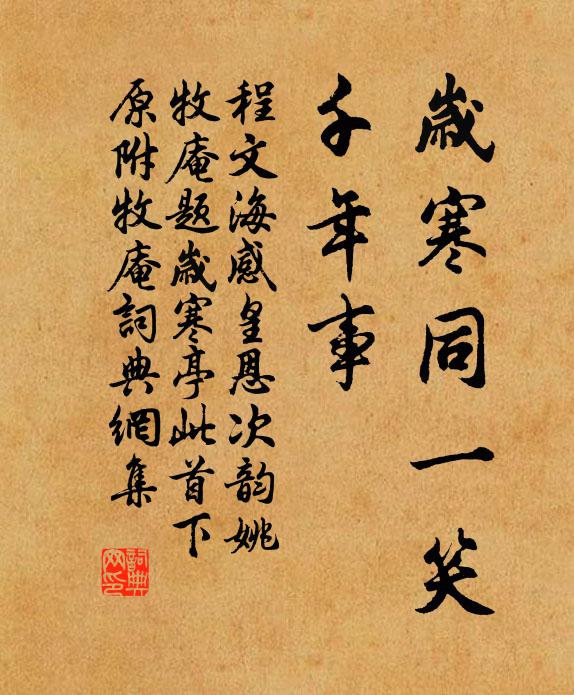 歲寒同一笑
千年事
程文海感皇恩次韵姚
牧庵題歲寒亭此首下
原附牧庵詞典網集
詞典網印